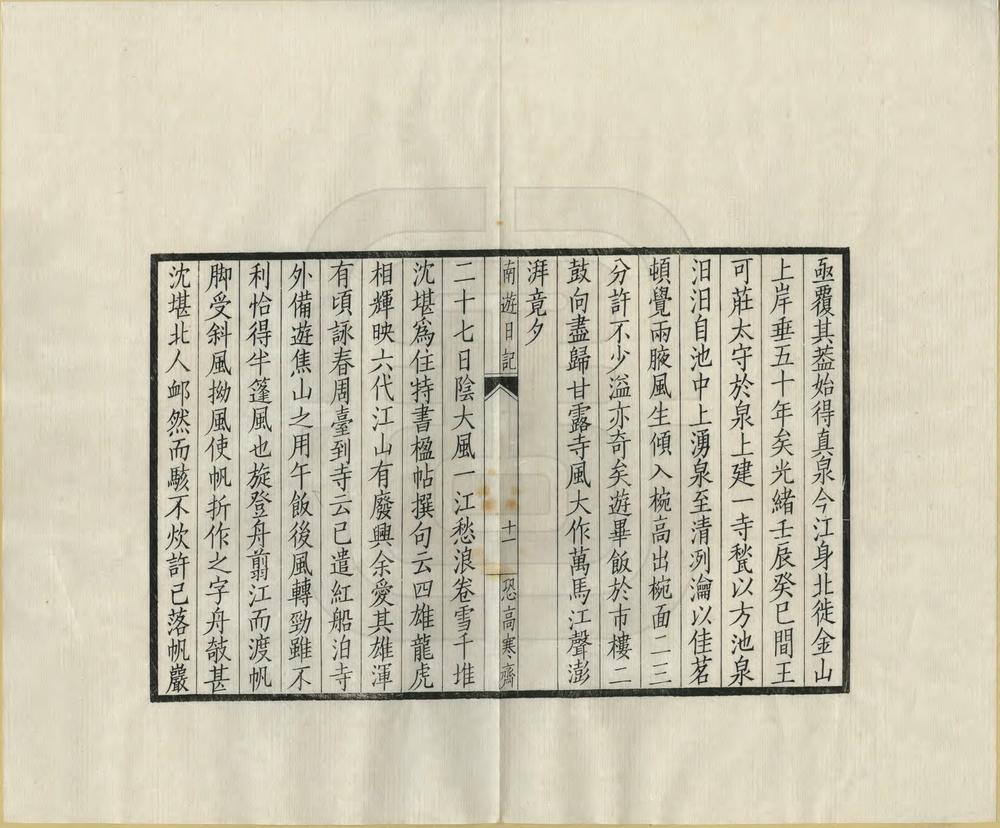 亟覆其葢始得真泉今江身北徙金山
上岸垂五十年矣光緒壬辰癸巳間王
可莊太守於泉上建一寺甃以方池泉
汩汩自池中上湧泉至清洌瀹以佳茗
頓覺兩腋風生傾入椀高出椀面二三
分許不少溢亦奇矣遊畢飯於市樓二
鼓向盡歸甘露寺風大作萬馬江聲澎
湃竟夕
南遊日記
十一
恐高寒齋
二十七日陰大風一江愁浪卷雪千堆
沈堪爲住持書楹帖撰句云四雄龍虎
相輝映六代江山有廢興余愛其雄渾
有頃詠春周臺到寺云已遣紅船泊寺
外備遊焦山之用午飯後風轉勁雖不
利恰得半篷風也旋登舟翦江而渡帆
脚受斜風拗風使帆折作之字舟攲甚
沈堪北人卹然而駭不炊許已落帆巖